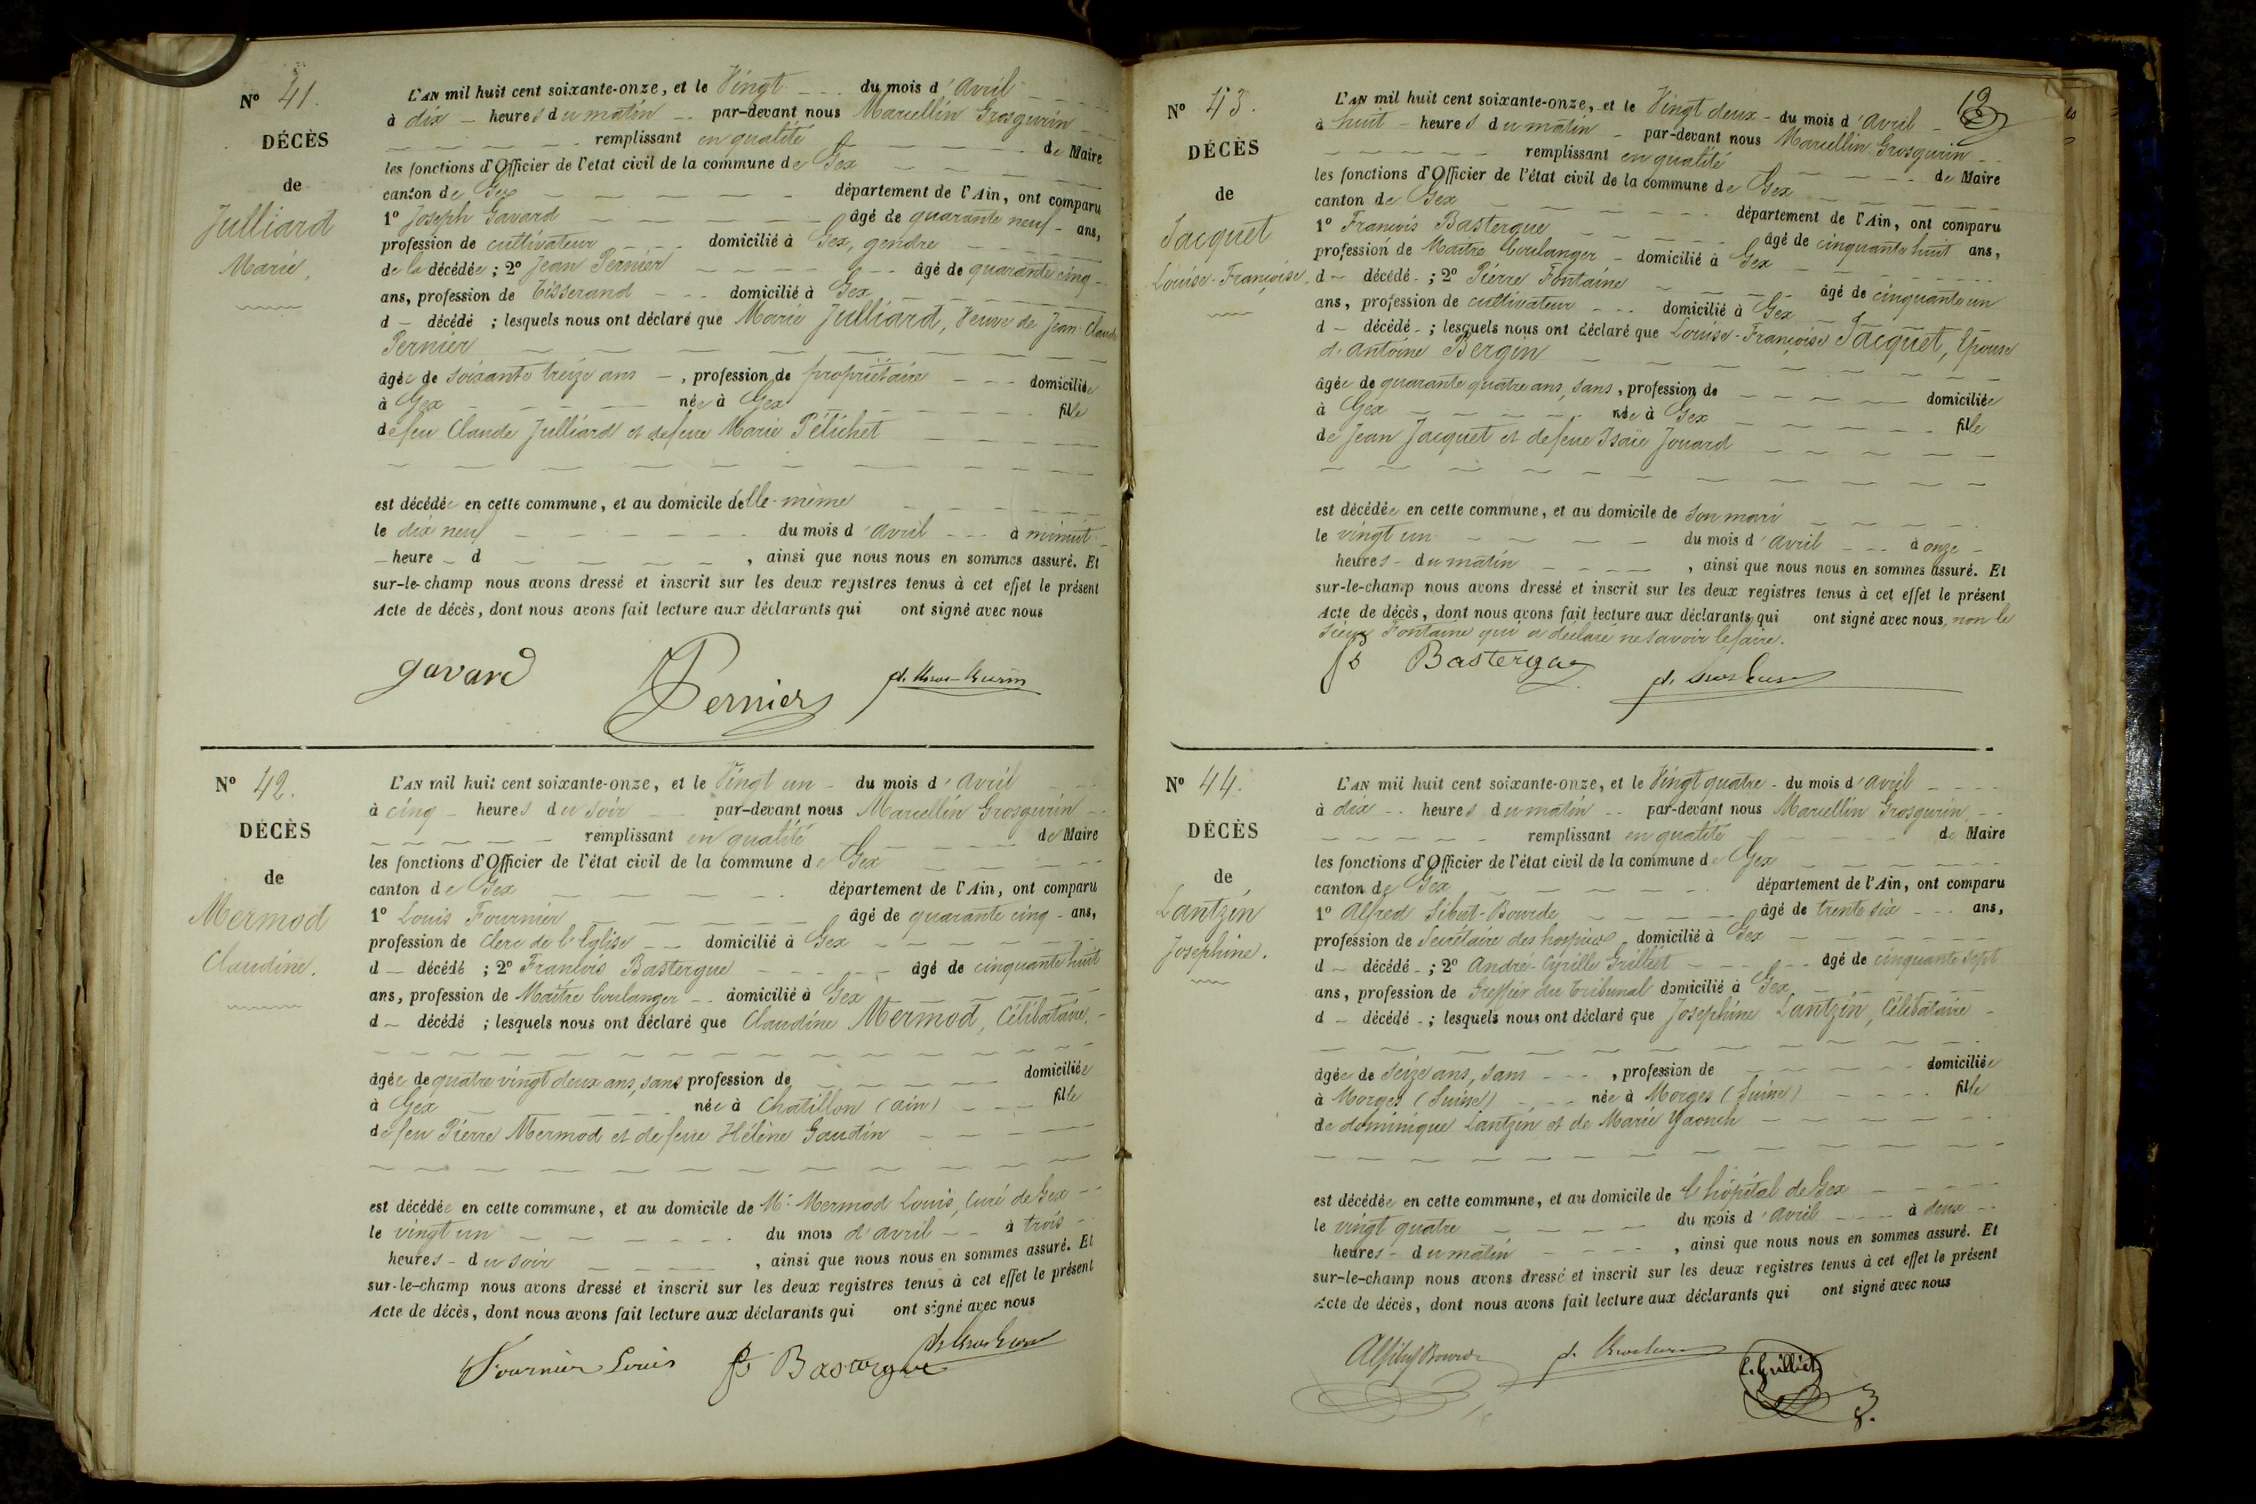 N° 41.
DÉCÈS
de
Julliard
Marie.
L'AN mil huit cent soixante-onze, et le Vingt du mois d'Avril
à dix heures du matin par-devant nous Marcellin Grosgurin
remplissant en qualité de Maire
les fonctions d'Officier de l'état civil de la commune de Gex
canton de Gex département de l'Ain, ont comparu
1° Joseph Gavard âgé de quarante neuf ans,
profession de cultivateur domicilié à Gex, gendre
de la décédée ; 2° Jean Pernier âgé de quarante cinq
ans, profession de Tisserand domicilié à Gex
d décédé ; lesquels nous ont déclaré que Marie Julliard, Veuve de Jean Claude
Pernier
âgée de soixante treize ans, profession de propriétaire domiciliée
à Gex née à Gex fille
de feu Claude Julliard et de feue Marie Pétichet
est décédée en cette commune, et au domicile d'elle-même
le dix neuf du mois d'avril à minuit
heure d , ainsi que nous nous en sommes assuré. Et
sur-le-champ nous avons dressé et inscrit sur les deux registres tenus à cet effet le présent
Acte de décès, dont nous avons fait lecture aux déclarants qui ont signé avec nous
gavard Pernier
N° 42.
DÉCÈS
de
Mermod
Claudine.
L'AN mil huit cent soixante-onze, et le Vingt un du mois d'Avril
à cinq heures du soir par-devant nous Marcellin Grosgurin
remplissant en qualité de Maire
les fonctions d'Officier de l'état civil de la commune de Gex
canton de Gex département de l'Ain, ont comparu
1° Louis Fournier âgé de quarante cinq ans,
profession de Clerc de l'Eglise domicilié à Gex
d décédé ; 2° François Bastergue âgé de cinquante huit
ans, profession de Maître boulanger domicilié à Gex
d décédé ; lesquels nous ont déclaré que Claudine Mermod, Célibataire,
âgée de quatre vingt deux ans, sans profession de domiciliée
à Gex née à Chatillon (Ain) fille
de feu Pierre Mermod et de feue Hélène Gaudin
est décédée en cette commune, et au domicile de Mr Mermod Louis, Curé de Gex
le vingt un du mois d'avril à trois
heures du soir , ainsi que nous nous en sommes assuré. Et
sur-le-champ nous avons dressé et inscrit sur les deux registres tenus à cet effet le présent
Acte de décès, dont nous avons fait lecture aux déclarants qui ont signé avec nous
Fournier Louis fs Bastergue
N° 43.
DÉCÈS
de
Jacquet
Louise-Françoise.
L'AN mil huit cent soixante-onze, et le Vingt deux du mois d'Avril
à huit heures du matin par-devant nous Marcellin Grosgurin
remplissant en qualité de Maire
les fonctions d'Officier de l'état civil de la commune de Gex
canton de Gex département de l'Ain, ont comparu
1° François Bastergue âgé de cinquante huit ans,
profession de Maître boulanger domicilié à Gex
d décédé ; 2° Pierre Fontaine âgé de cinquante un
ans, profession de cultivateur domicilié à Gex
d décédé ; lesquels nous ont déclaré que Louise-Françoise Jacquet, Epouse
d'Antoine Bergin
âgée de quarante quatre ans, sans, profession de domiciliée
à Gex née à Gex fille
de Jean Jacquet et de feue Isaïe Jouard
est décédée en cette commune, et au domicile de son mari
le vingt un du mois d'avril à onze
heures du matin , ainsi que nous nous en sommes assuré. Et
sur-le-champ nous avons dressé et inscrit sur les deux registres tenus à cet effet le présent
Acte de décès, dont nous avons fait lecture aux déclarants qui ont signé avec nous, non le
sieur Fontaine qui a déclaré ne savoir le faire.
fs Bastergue
N° 44.
DÉCÈS
de
Lantzin
Josephine.
L'AN mil huit cent soixante-onze, et le Vingt quatre du mois d'Avril
à dix heures du matin par-devant nous Marcellin Grosgurin
remplissant en qualité de Maire
les fonctions d'Officier de l'état civil de la commune de Gex
canton de Gex département de l'Ain, ont comparu
1° Alfred Sibut-Bourde âgé de trente six ans,
profession de Secrétaire des hospices domicilié à Gex
d décédé ; 2° André-Cyrille Grilliet âgé de cinquante sept
ans, profession de Greffier du tribunal domicilié à Gex
d décédé ; lesquels nous ont déclaré que Josephine Lantzin, Célibataire
âgée de Seize ans, sans, profession de domiciliée
à Morges (Suisse) née à Morges (Suisse) fille
de dominique Lantzin et de Marie
est décédée en cette commune, et au domicile de l'hôpital de Gex
le vingt quatre du mois d'avril à deux
heures du matin , ainsi que nous nous en sommes assuré. Et
sur-le-champ nous avons dressé et inscrit sur les deux registres tenus à cet effet le présent
Acte de décès, dont nous avons fait lecture aux déclarants qui ont signé avec nous
C. Grilliet